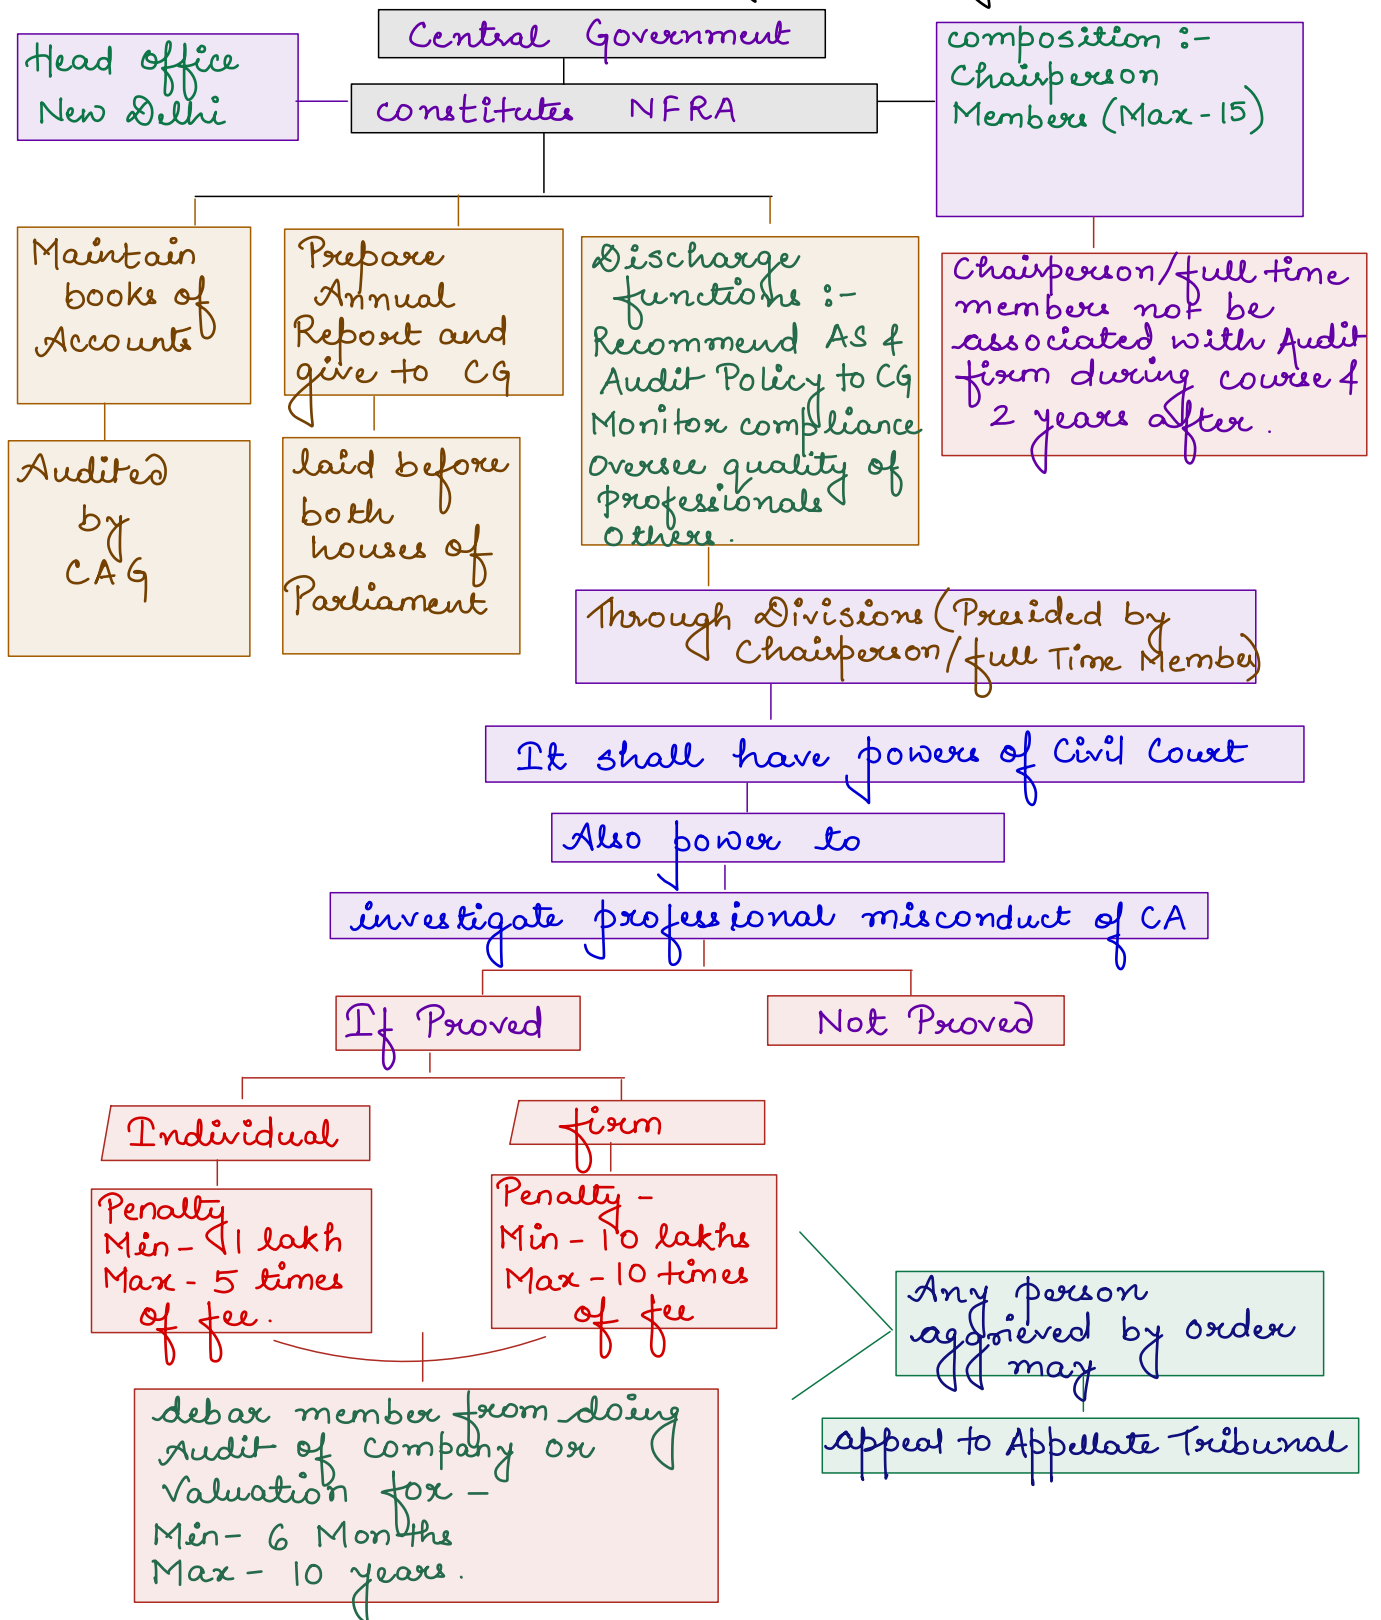 Central Government
Head office
New Delhi
constitutes NFRA
composition :-
Chairperson
Members (Max - 15)
Maintain
books of
Accounts
Audited
by
CAG
Prepare
Annual
Report and
give to CG
laid before
both
houses of
Parliament
Discharge
functions :-
Recommend AS &
Audit Policy to CG
Monitor compliance
Oversee quality of
professionals
Others.
Chairperson/full time
members not be
associated with Audit
firm during course &
2 years after.
Through Divisions (Presided by
Chairperson/full Time Member)
It shall have powers of Civil Court
Also power to
investigate professional misconduct of CA
If Proved
Not Proved
Individual
Penalty
Min - 1 lakh
Max - 5 times
of fee.
firm
Penalty -
Min - 10 lakhs
Max - 10 times
of fee
debar member from doing
Audit of company or
Valuation for -
Min - 6 Months
Max - 10 years.
Any person
aggrieved by order
may
appeal to Appellate Tribunal